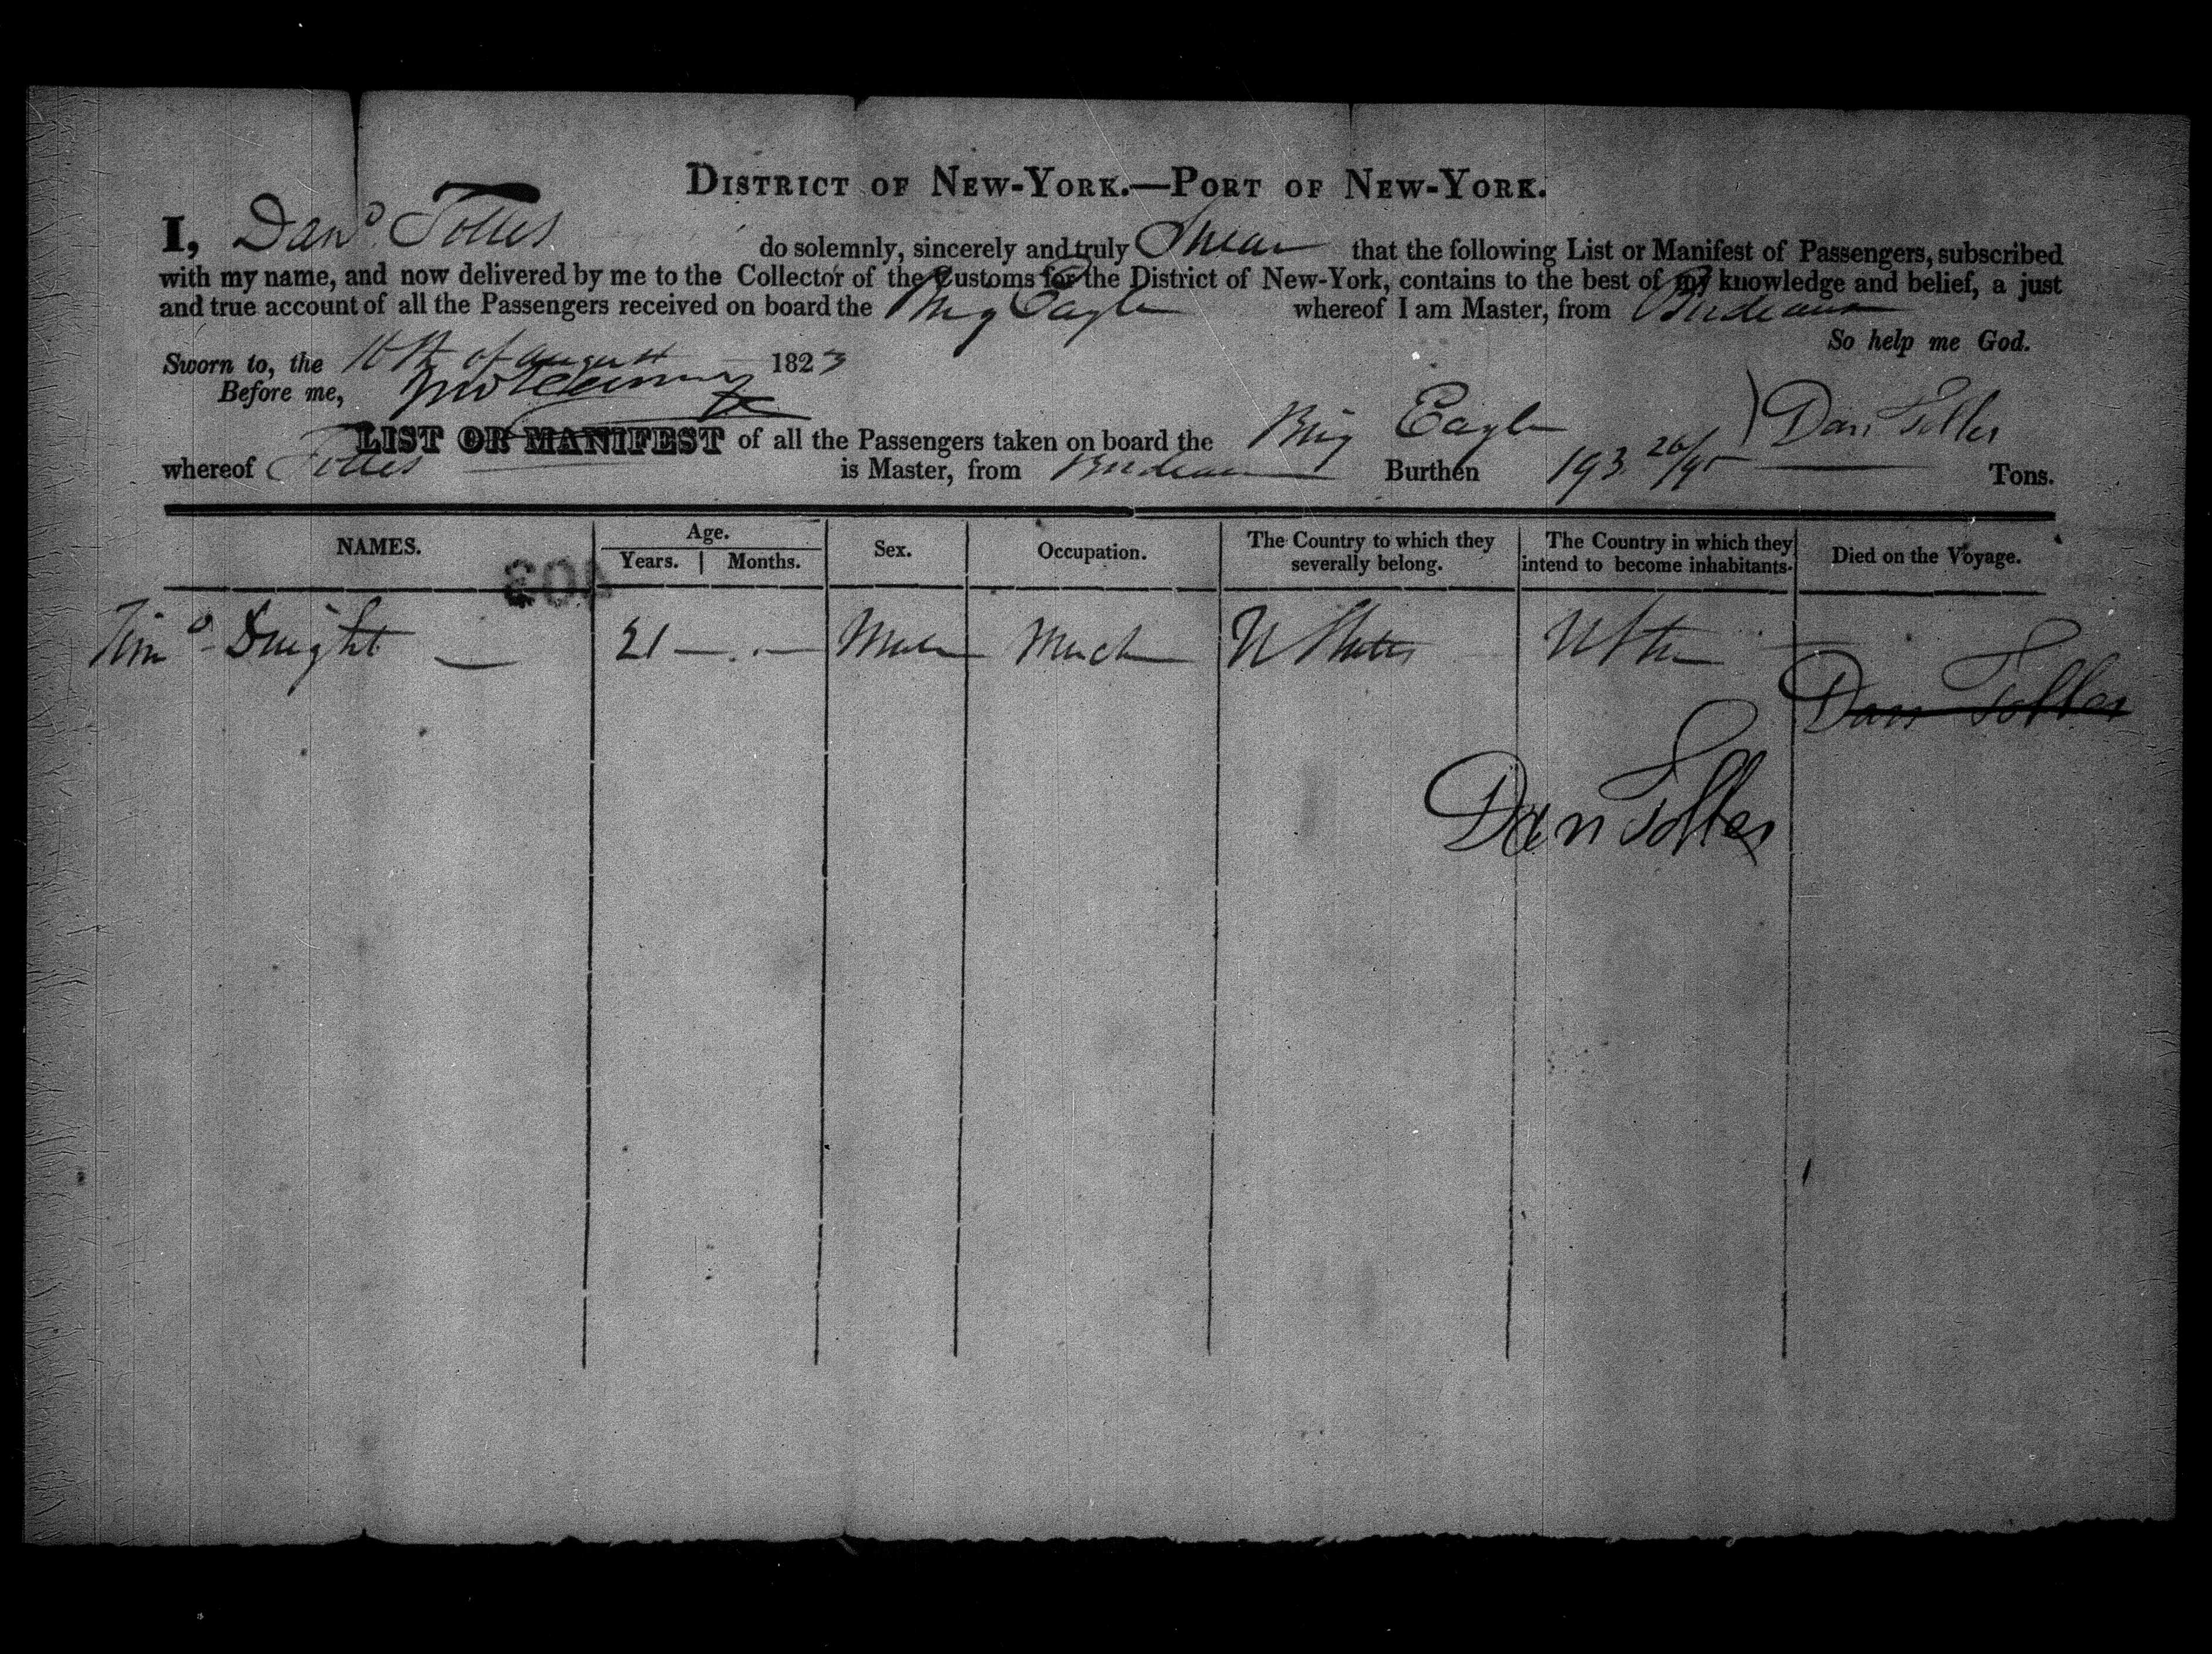 DISTRICT OF NEW-YORK.—PORT OF NEW-YORK.
I, Dan Tolles do solemnly, sincerely and truly Swear that the following List or Manifest of Passengers, subscribed
with my name, and now delivered by me to the Collector of the Customs for the District of New-York, contains to the best of my knowledge and belief, a just
and true account of all the Passengers received on board the Brig Eagle whereof I am Master, from Burdeaux
So help me God.
Sworn to, the of August 1823
Before me,
Dan Tolles
LIST OR MANIFEST of all the Passengers taken on board the Brig Eagle
whereof Tolles is Master, from Burdeaux Burthen 193 26/95 Tons.
NAMES. Age. Years. Months. Sex. Occupation. The Country to which they severally belong. The Country in which they intend to become inhabitants. Died on the Voyage.
403
Timo Dwight 21 Male Mech U States U Sta
Dan Tolles
Dan Tolles